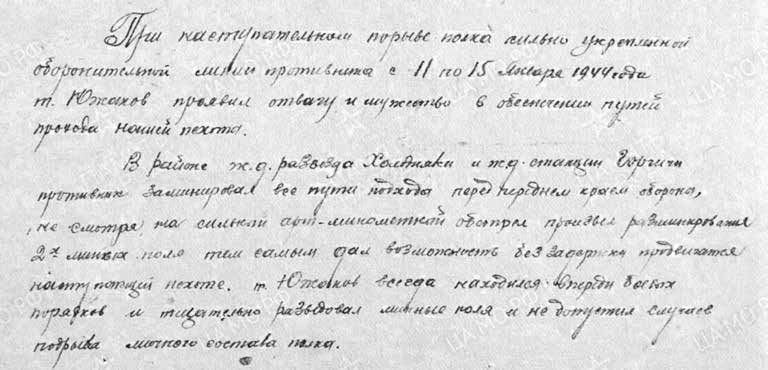 При наступательном порыве полка сильно укрепленной
оборонительной линии противника с 11 по 15 Января 1944 года
т. Южаков проявил отвагу и мужество в обеспечении путей
прохода нашей пехоте.
В районе ж.д. разъезда Холодники и ж.д. станции Горвичи
противник заминировал все пути подхода перед переднем краем оборона,
не смотря на сильной арт-минометной обстрел произвел разминирование
2х минных поля тем самым дал возможность без задержки продвигатся
наступающей пехоте. т. Южаков всегда находился впереди боевых
порядков и тщательно разведовал минные поля и не допустил случаев
подрыва личного состава полка.
ЦАМО.РФ